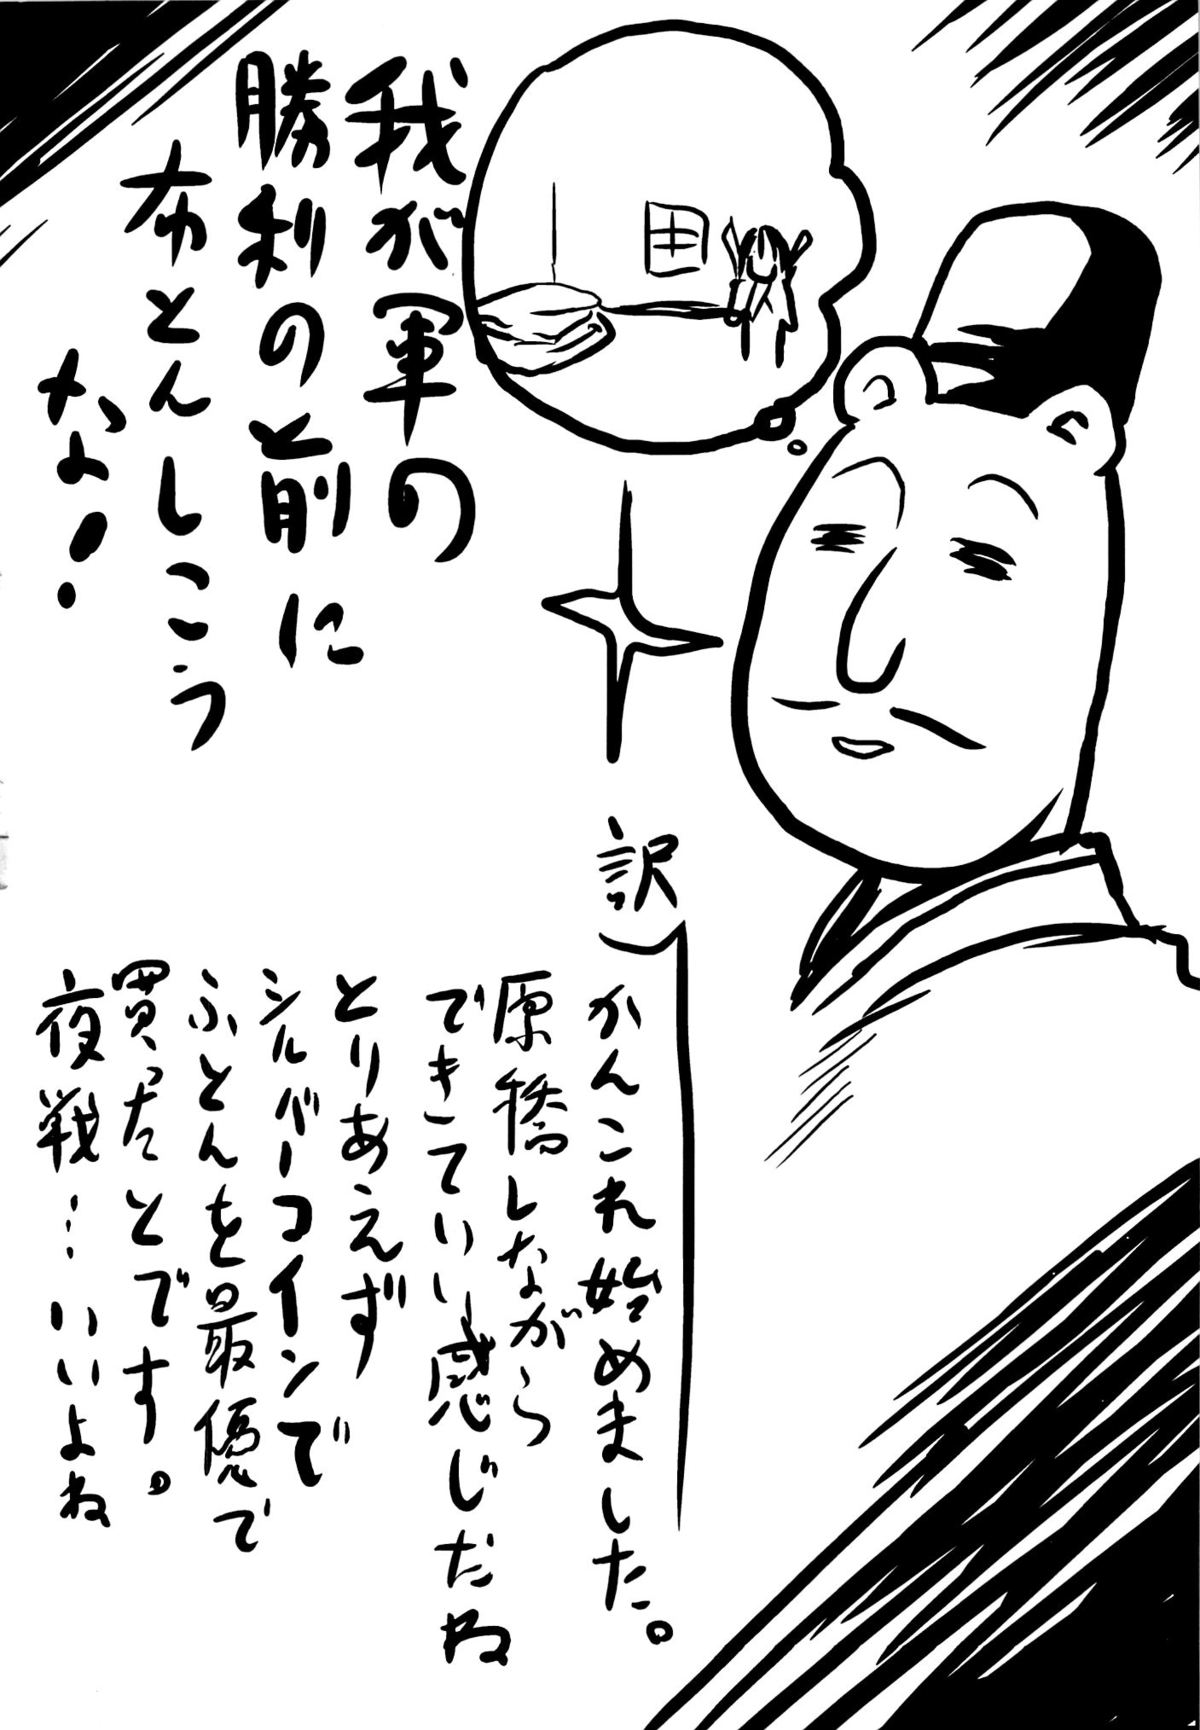 我が軍の
勝利の前に
布とんしこう
な!
訳)
かんこれ始めました。
原稿しながら
できていい感じだね
とりあえず
シルバーコインで
ふとんを最優で
買ったとです。
夜戦…いいよね